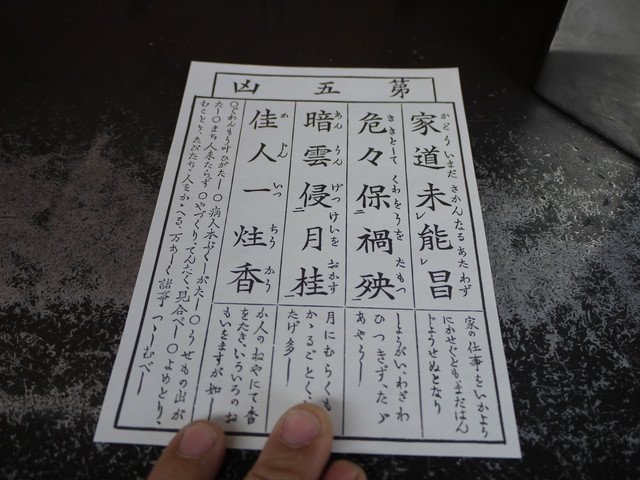 第五凶
家道未能昌
かどういまださかんなるあたわず
家の仕事をいかよう
にかせぐともまだはん
じょうせぬとなり
危々保禍殃
ききとしてくわをうをたもつ
しょうがい、わざわ
ひつきず、たゞ
あやうし
暗雲侵月桂
あんうんげっけいをおかす
月にむらくも
かゝるごとく、
たげ多し
佳人一炷香
かじんいっちうかう
か人のねやにて香
をたき、いろいろのお
もいをますが如し
〇くわんもう叶ひがたし〇病人本ぷくしがたし〇うせもの出が
たし〇まち人来たらず〇やづくりてんたく、見合べし〇よめとり、
むことり、たびたち、人をかゝへる、万あしく諸事つゝしむべし